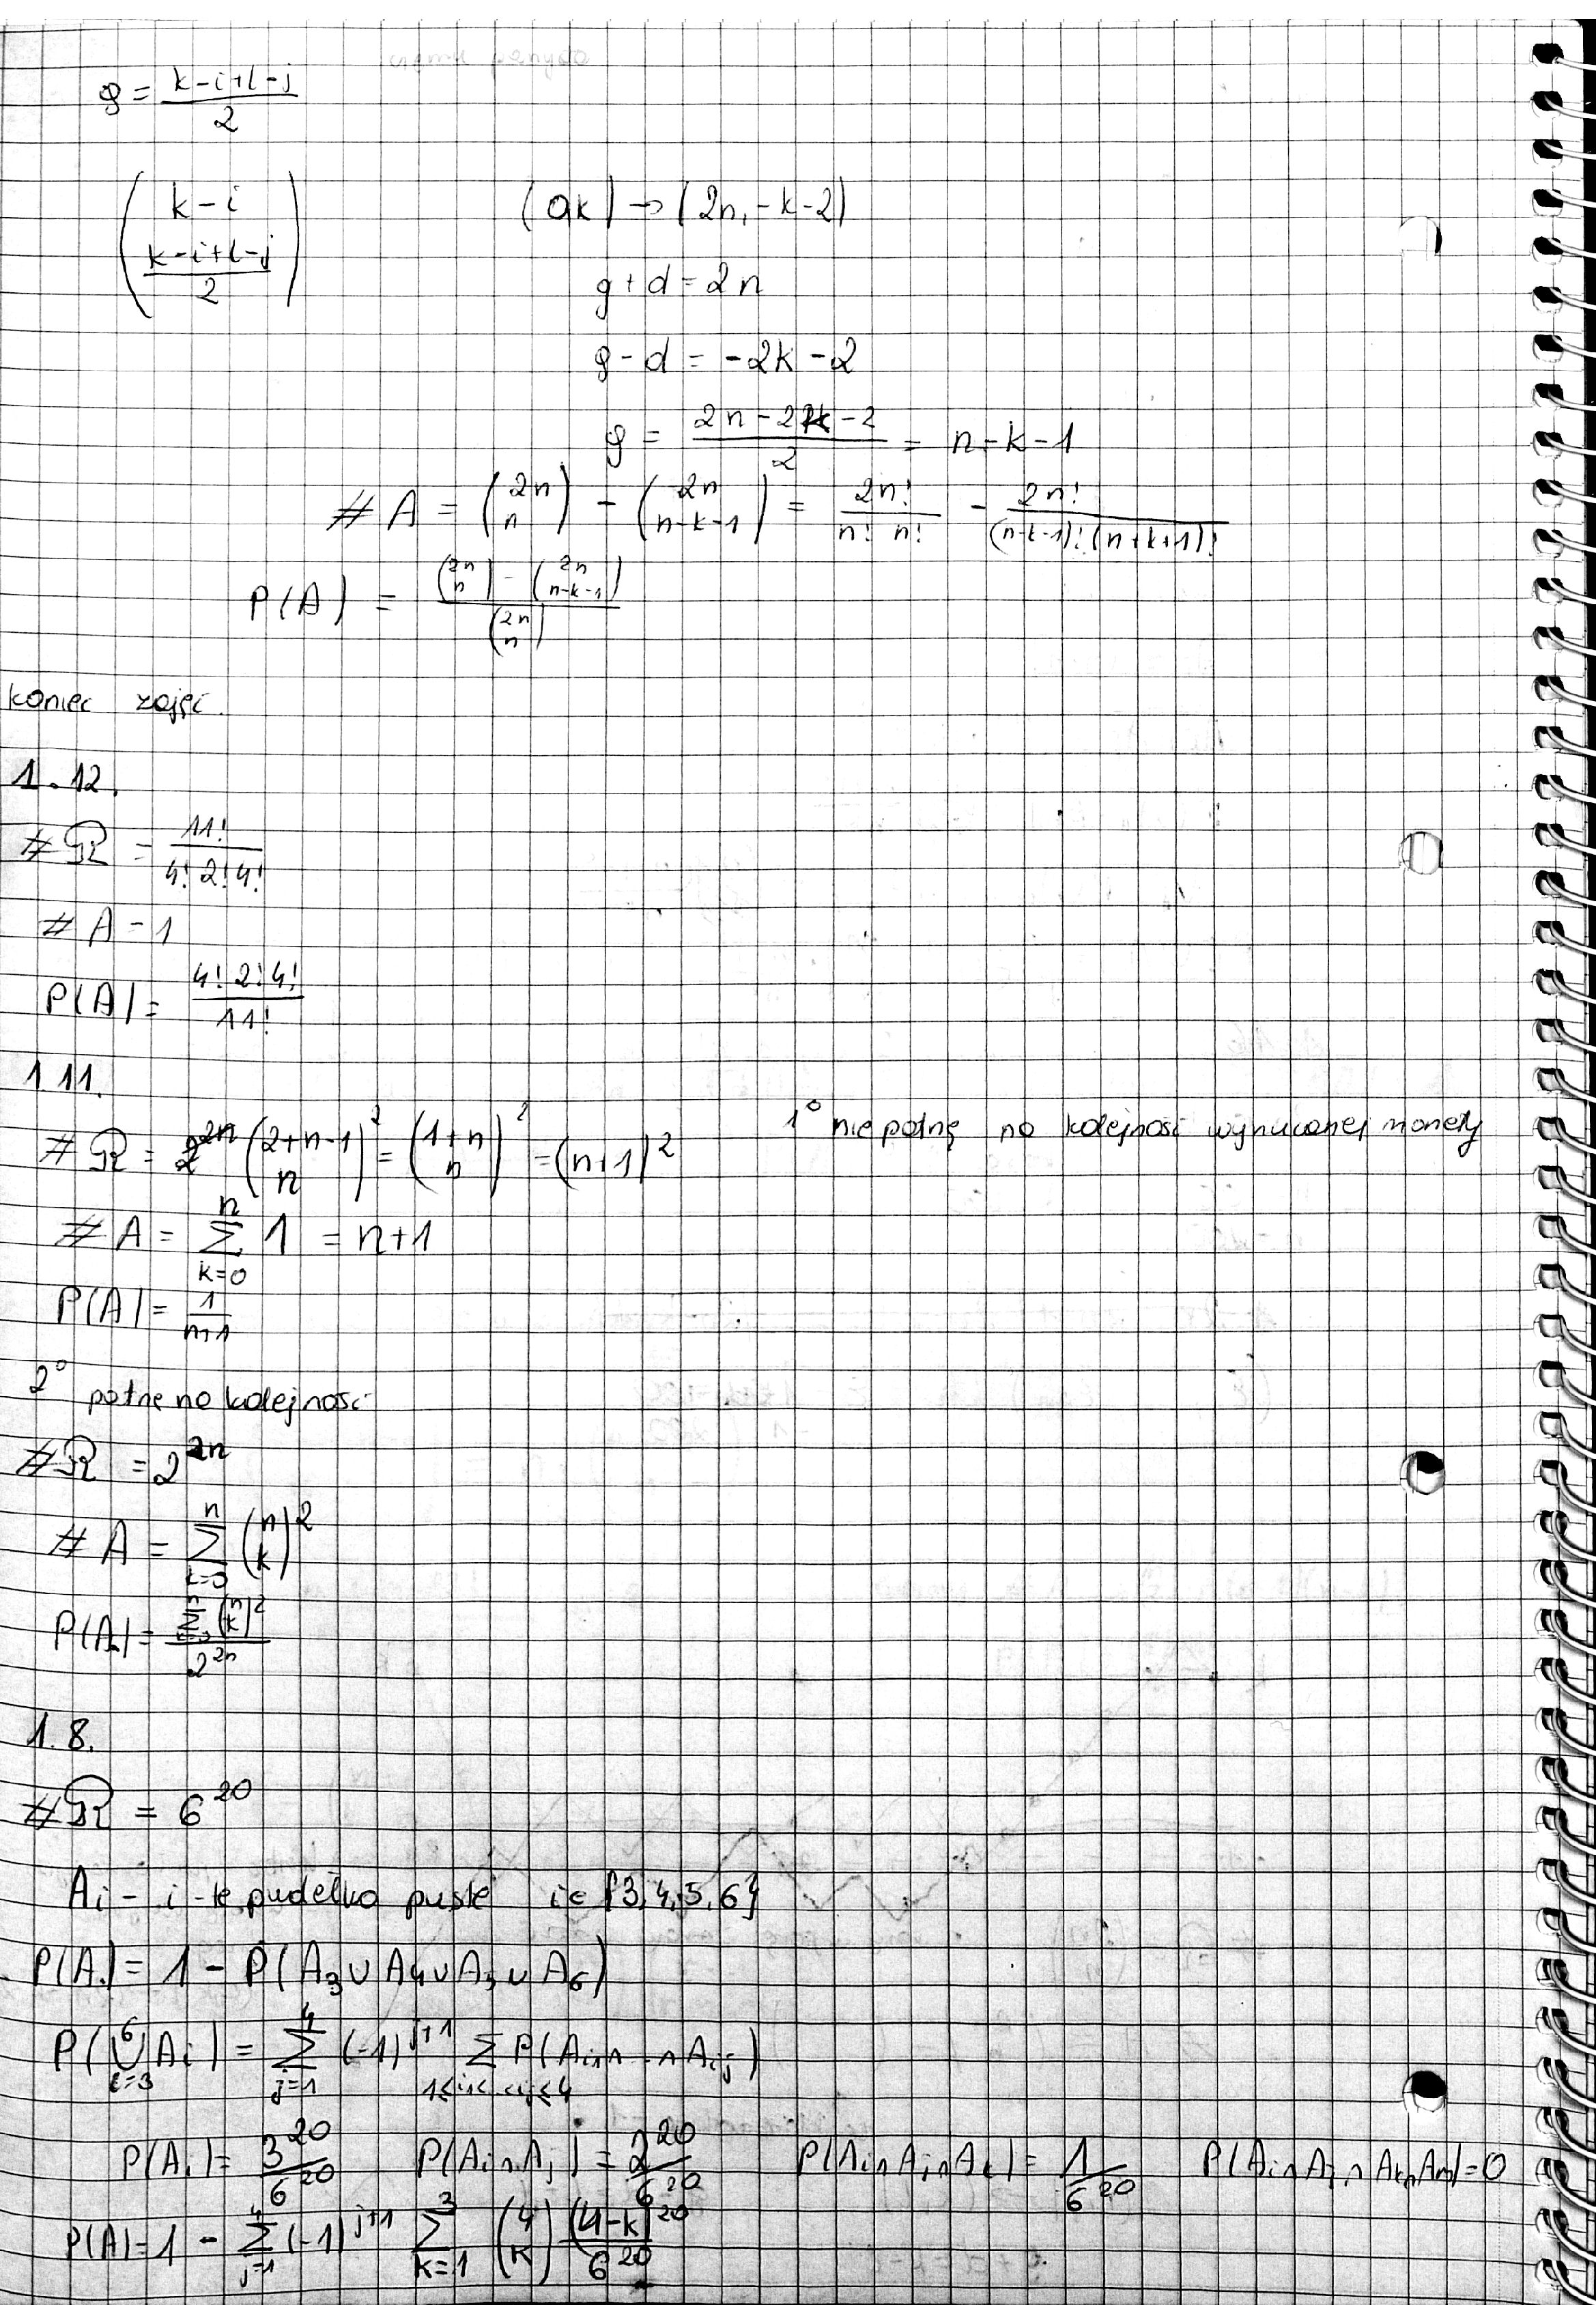 g = \frac{k-i+l-j}{2}
\binom{k-i}{\frac{k-i+l-j}{2}}
(0,k) → (2n, -k-2)
g + d = 2n
g - d = -2k - 2
g = \frac{2n-2k-2}{2} = n-k-1
# A = \binom{2n}{n} - \binom{2n}{n-k-1} = \frac{2n!}{n! n!} - \frac{2n!}{(n-k-1)! (n+k+1)!}
P(A) = \frac{\binom{2n}{n} - \binom{2n}{n-k-1}}{\binom{2n}{n}}
koniec zajęć.
1.12.
# Ω = \frac{11!}{4! 2! 4!}
# A = 1
P(A) = \frac{4! 2! 4!}{11!}
1.11.
# Ω = \binom{2+n-1}{n}^2 = \binom{1+n}{n}^2 = (n+1)^2
1° nie patrzę na kolejność wyrzuconej monety
# A = \sum_{k=0}^{n} 1 = n+1
P(A) = \frac{1}{n+1}
2° patrzę na kolejność
# Ω = 2^{2n}
# A = \sum_{k=0}^{n} \binom{n}{k}^2
P(A) = \frac{\sum_{k=0}^{n} \binom{n}{k}^2}{2^{2n}}
1.8.
# Ω = 6^{20}
Ai - i-te pudełko puste i ∈ {3,4,5,6}
P(A) = 1 - P(A_3 ∪ A_4 ∪ A_5 ∪ A_6)
P(\bigcup_{i=3}^{6} Ai) = \sum_{j=1}^{4} (-1)^{j+1} \sum_{1≤i_1<...<i_j≤4} P(A_{i_1} ∩ ... ∩ A_{i_j})
P(A_i) = \frac{3^{20}}{6^{20}} P(A_i ∩ A_j) = \frac{2^{20}}{6^{20}} P(A_i ∩ A_j ∩ A_k) = \frac{1}{6^{20}} P(A_i ∩ A_j ∩ A_k ∩ A_m) = 0
P(A) = 1 - \sum_{j=1}^{4} (-1)^{j+1} \sum_{k=1}^{3} \binom{4}{k} \frac{(4-k)^{20}}{6^{20}}